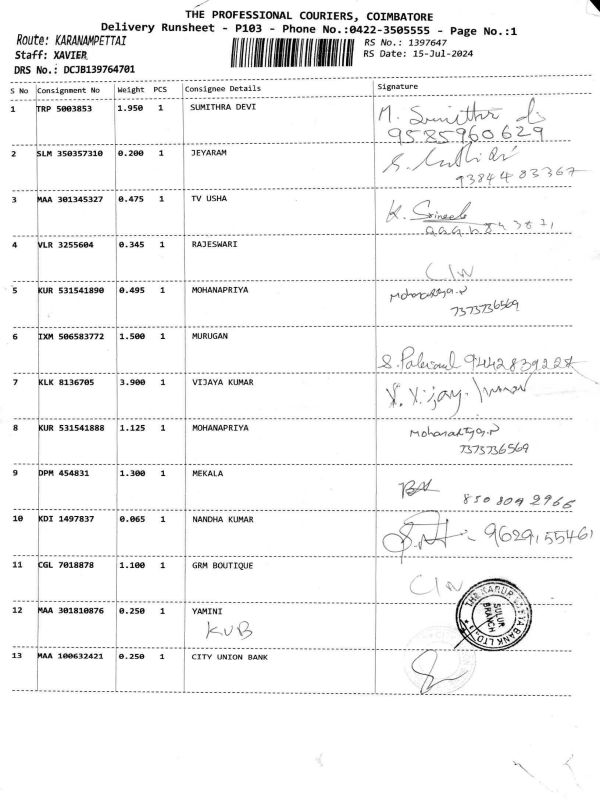 THE PROFESSIONAL COURIERS, COIMBATORE
Delivery Runsheet - P103 - Phone No.:0422-3505555 - Page No.:1
Route: KARANAMPETTAI
Staff: XAVIER
DRS No.: DCJB139764701
RS No.: 1397647
RS Date: 15-Jul-2024
S No Consignment No Weight PCS Consignee Details Signature
1 TRP 5003853 1.950 1 SUMITHRA DEVI M. Sumithra
9585960629
2 SLM 350357310 0.200 1 JEYARAM
9384483367
3 MAA 301345327 0.475 1 TV USHA K.
4 VLR 3255604 0.345 1 RAJESWARI
C/W
5 KUR 531541890 0.495 1 MOHANAPRIYA Mohanapriya.P
7373736569
6 IXM 506583772 1.500 1 MURUGAN
7 KLK 8136705 3.900 1 VIJAYA KUMAR
8 KUR 531541888 1.125 1 MOHANAPRIYA Mohanapriya.P
7373736569
9 DPM 454831 1.300 1 MEKALA
8508092966
10 KDI 1497837 0.065 1 NANDHA KUMAR 9629155461
11 CGL 7018878 1.100 1 GRM BOUTIQUE
C/W
12 MAA 301810876 0.250 1 YAMINI
KVB
THE KARUR VYSYA BANK LTD.
SULUR
BRANCH
13 MAA 100632421 0.250 1 CITY UNION BANK